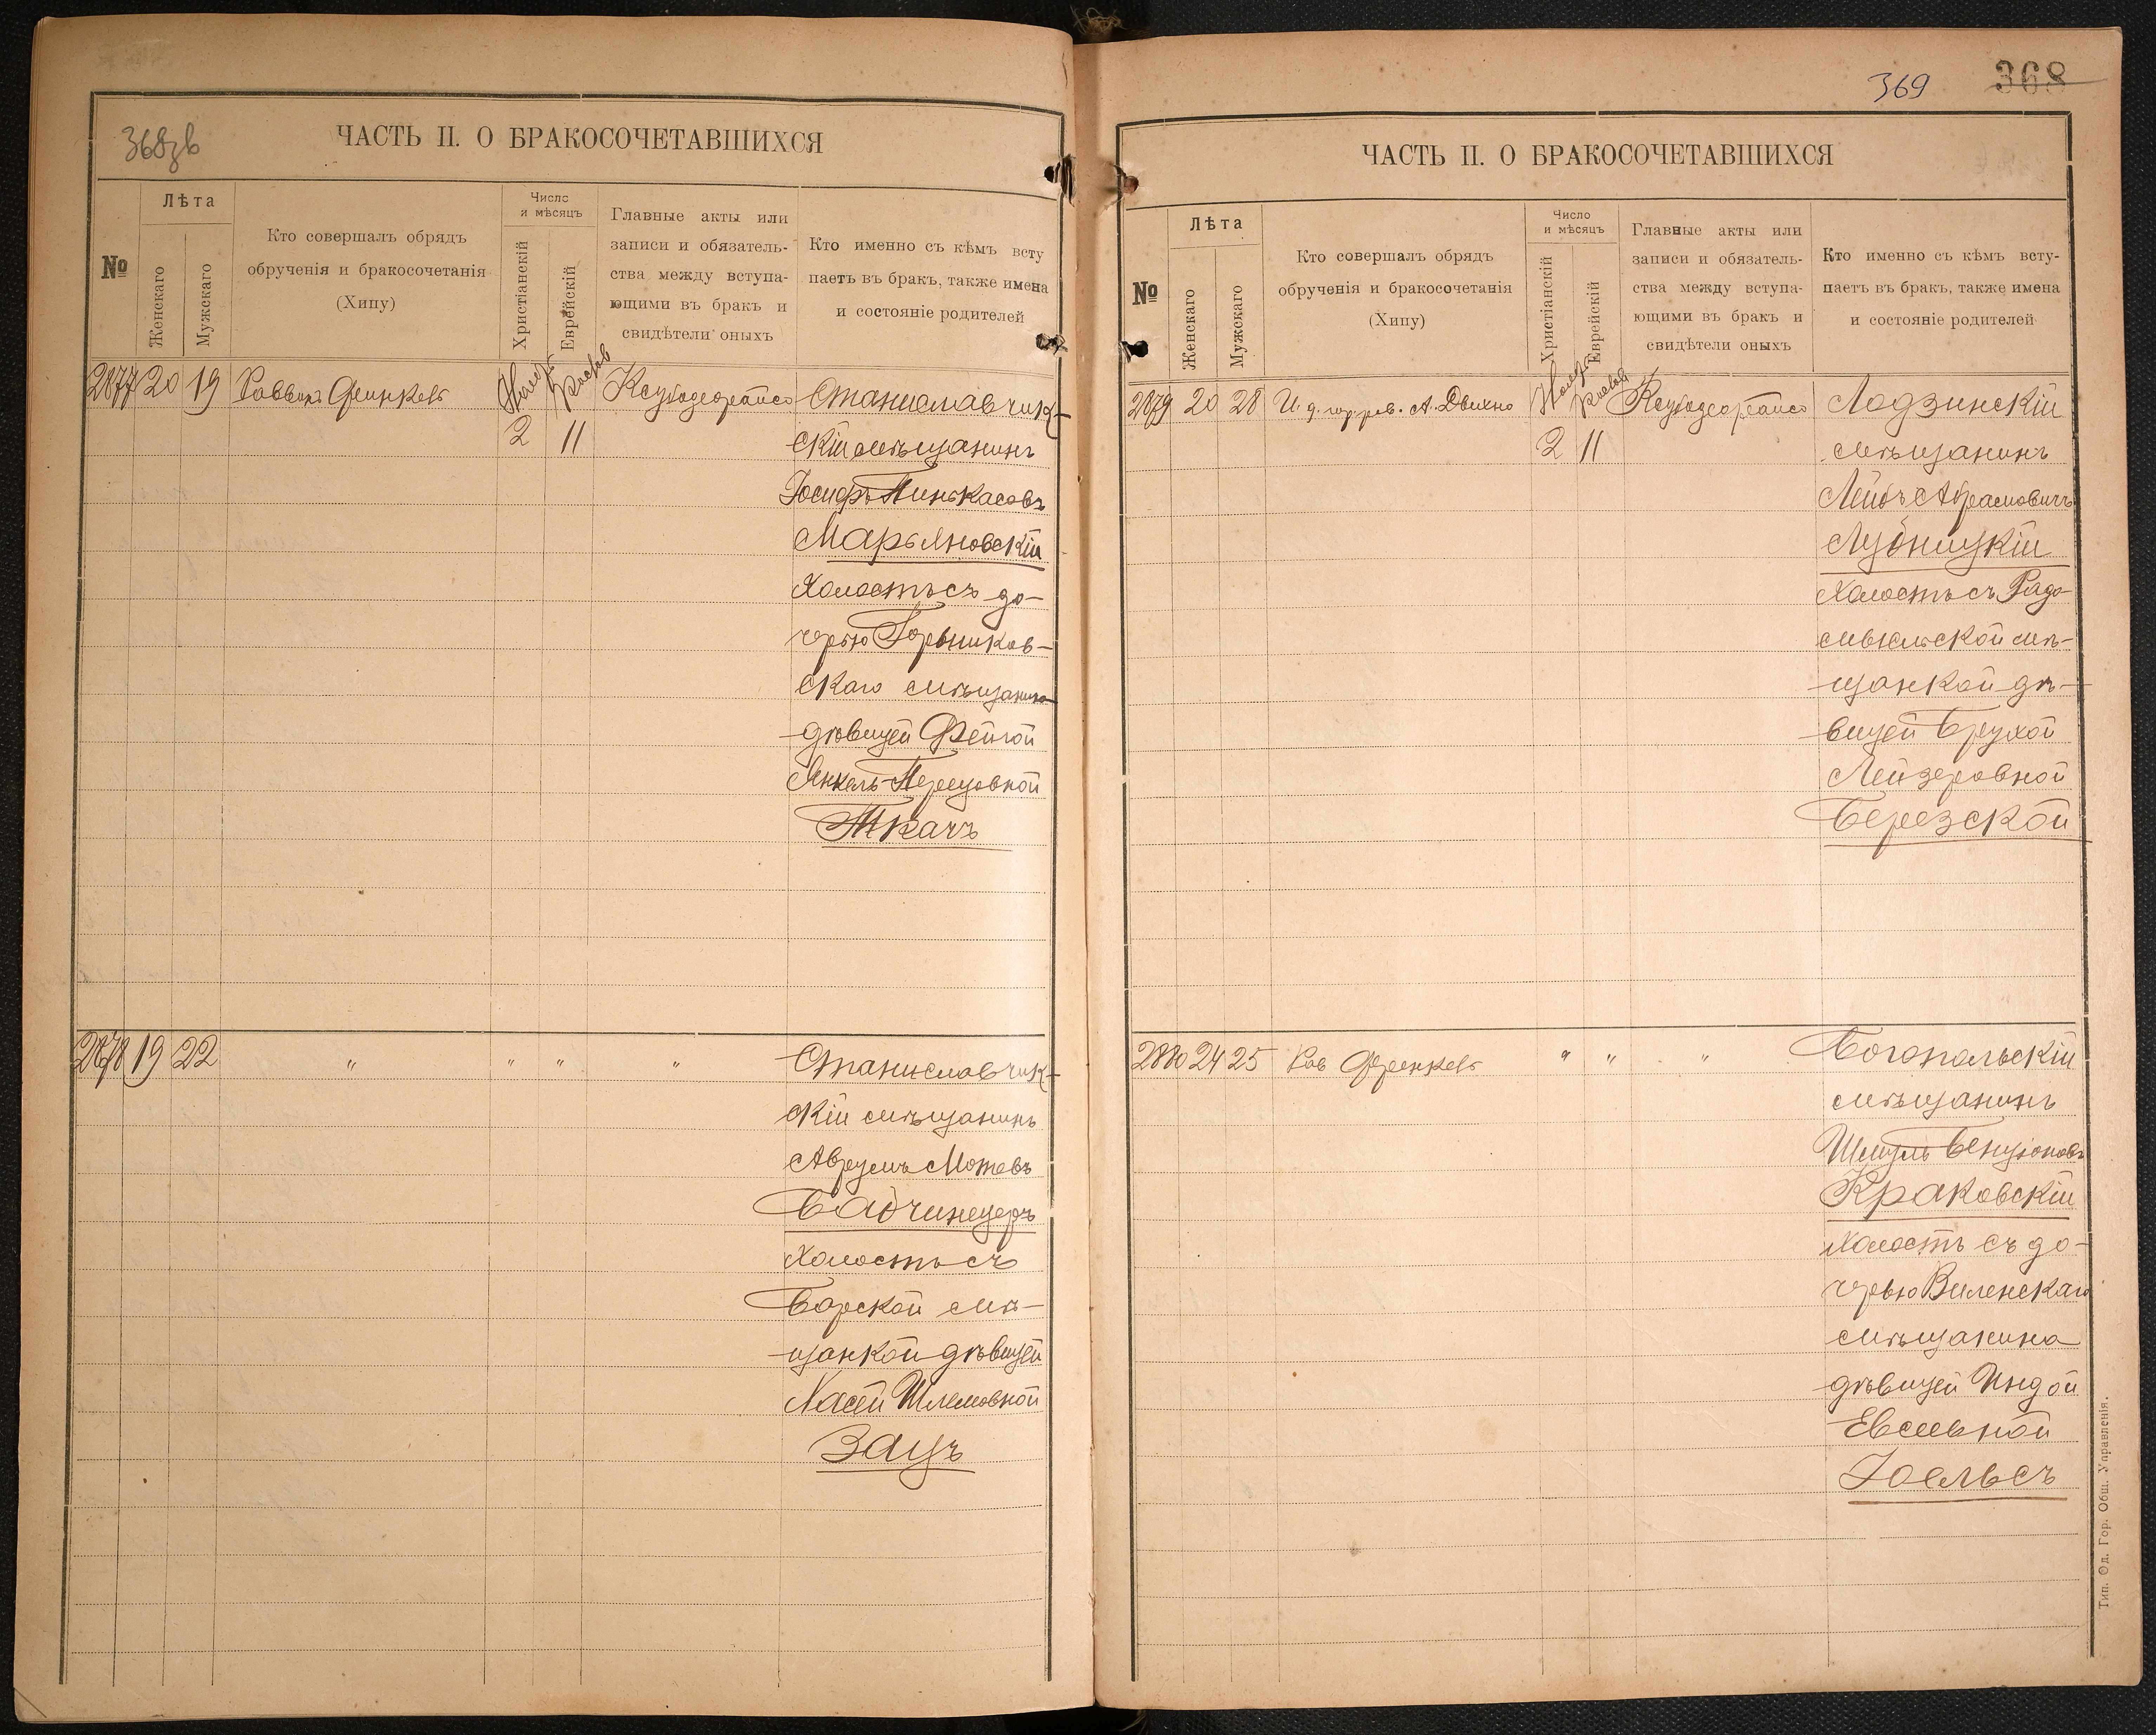 368зв
ЧАСТЬ II. О БРАКОСОЧЕТАВШИХСЯ
№
Лѣта
Женскаго
Мужскаго
Кто совершалъ обрядъ
обрученія и бракосочетанія
(Хипу)
Число
и мѣсяцъ
Христіанскій
Еврейскій
Главные акты или
записи и обязатель-
ства между вступа-
ющими въ бракъ и
свидѣтели оныхъ
Кто именно съ кѣмъ всту
паетъ въ бракъ, также имена
и состояніе родителей
2877 20 19 Раввинъ
2 11
Станиславчик-
скій мѣщанинъ
Іосифъ Пинькасовъ
Марьяновскій
холостъ съ до-
черью
скаго мѣщанина
дѣвицей Фейгой
Янкель-Перецовной
Ткачъ
2878 19 22 " " " "
Станиславчик-
скій мѣщанинъ
Аврумъ Мотевъ
холостъ съ
Барской мѣ-
щанкой дѣвицей
Хасей Шлемовной
Зацъ
369 368
ЧАСТЬ II. О БРАКОСОЧЕТАВШИХСЯ
№
Лѣта
Женскаго
Мужскаго
Кто совершалъ обрядъ
обрученія и бракосочетанія
(Хипу)
Число
и мѣсяцъ
Христіанскій
Еврейскій
Главные акты или
записи и обязатель-
ства между вступа-
ющими въ бракъ и
свидѣтели оныхъ
Кто именно съ кѣмъ всту-
паетъ въ бракъ, также имена
и состояніе родителей
2879 20 28 И. д. гор. рав. А. Двихно
2 11
Лодзинскій
мѣщанинъ
Лейбъ Абрамовичъ
Лубницкій
холостъ съ Радо-
мысльской мѣ-
щанкой дѣ-
вицей Брухой
Лейзеровной
Березской
2880 24 25 Рав " " "
Богопольскій
мѣщанинъ
Шмуль Бенціоновъ
Краковскій
холостъ съ до-
черью Виленскаго
мѣщанина
дѣвицей Индой
Евсѣевной
Іоельсъ
Тип. Од. Гор. Общ. Управленія.